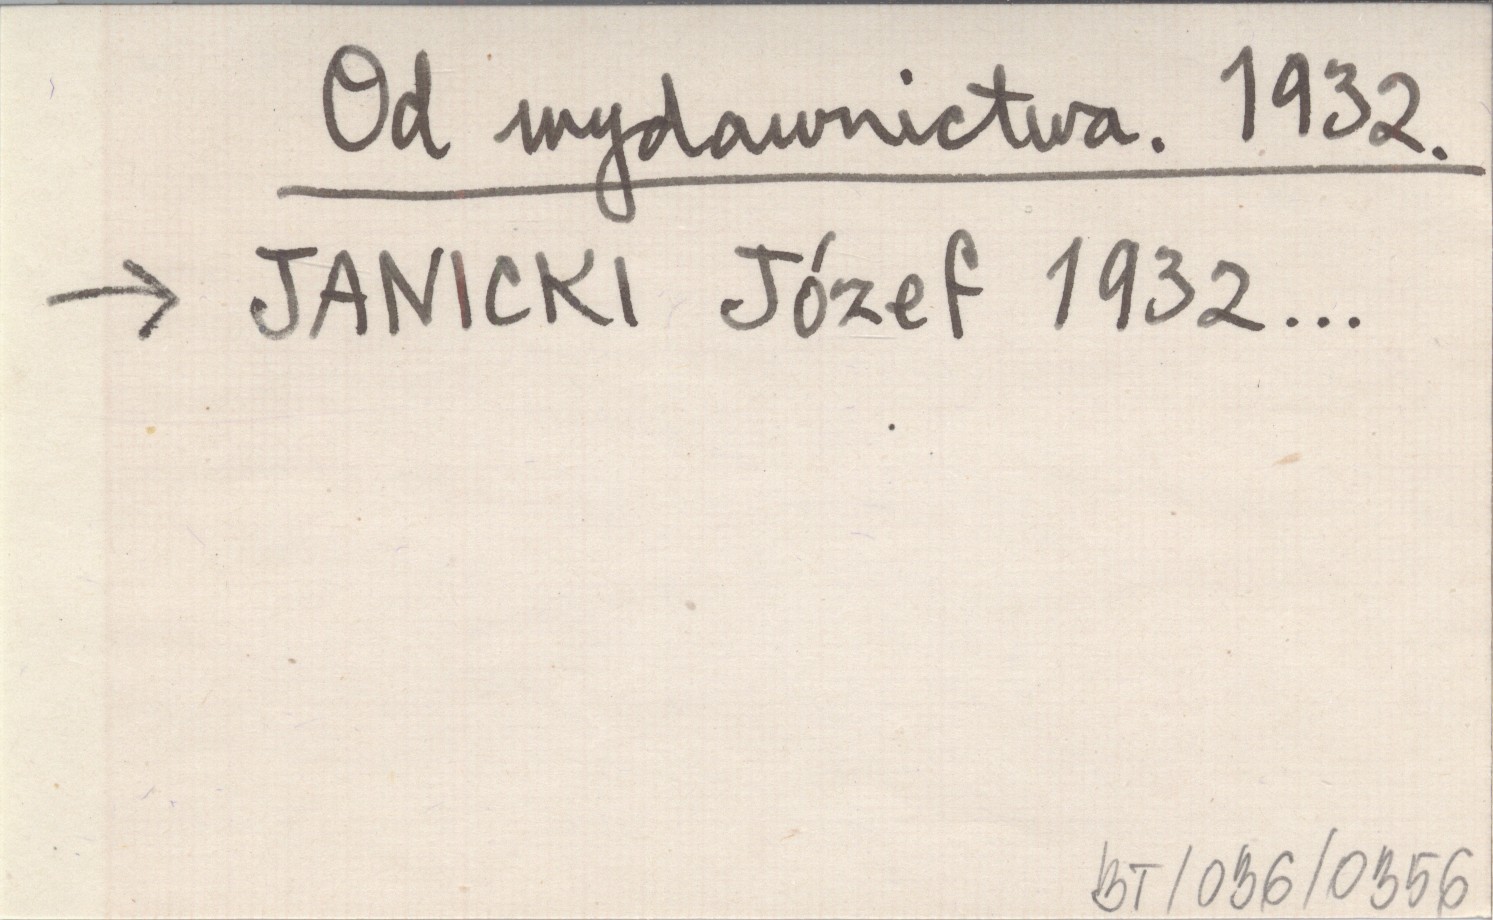 Od wydawnictwa. 1932.
→ JANICKI Józef 1932...
BT/036/0356